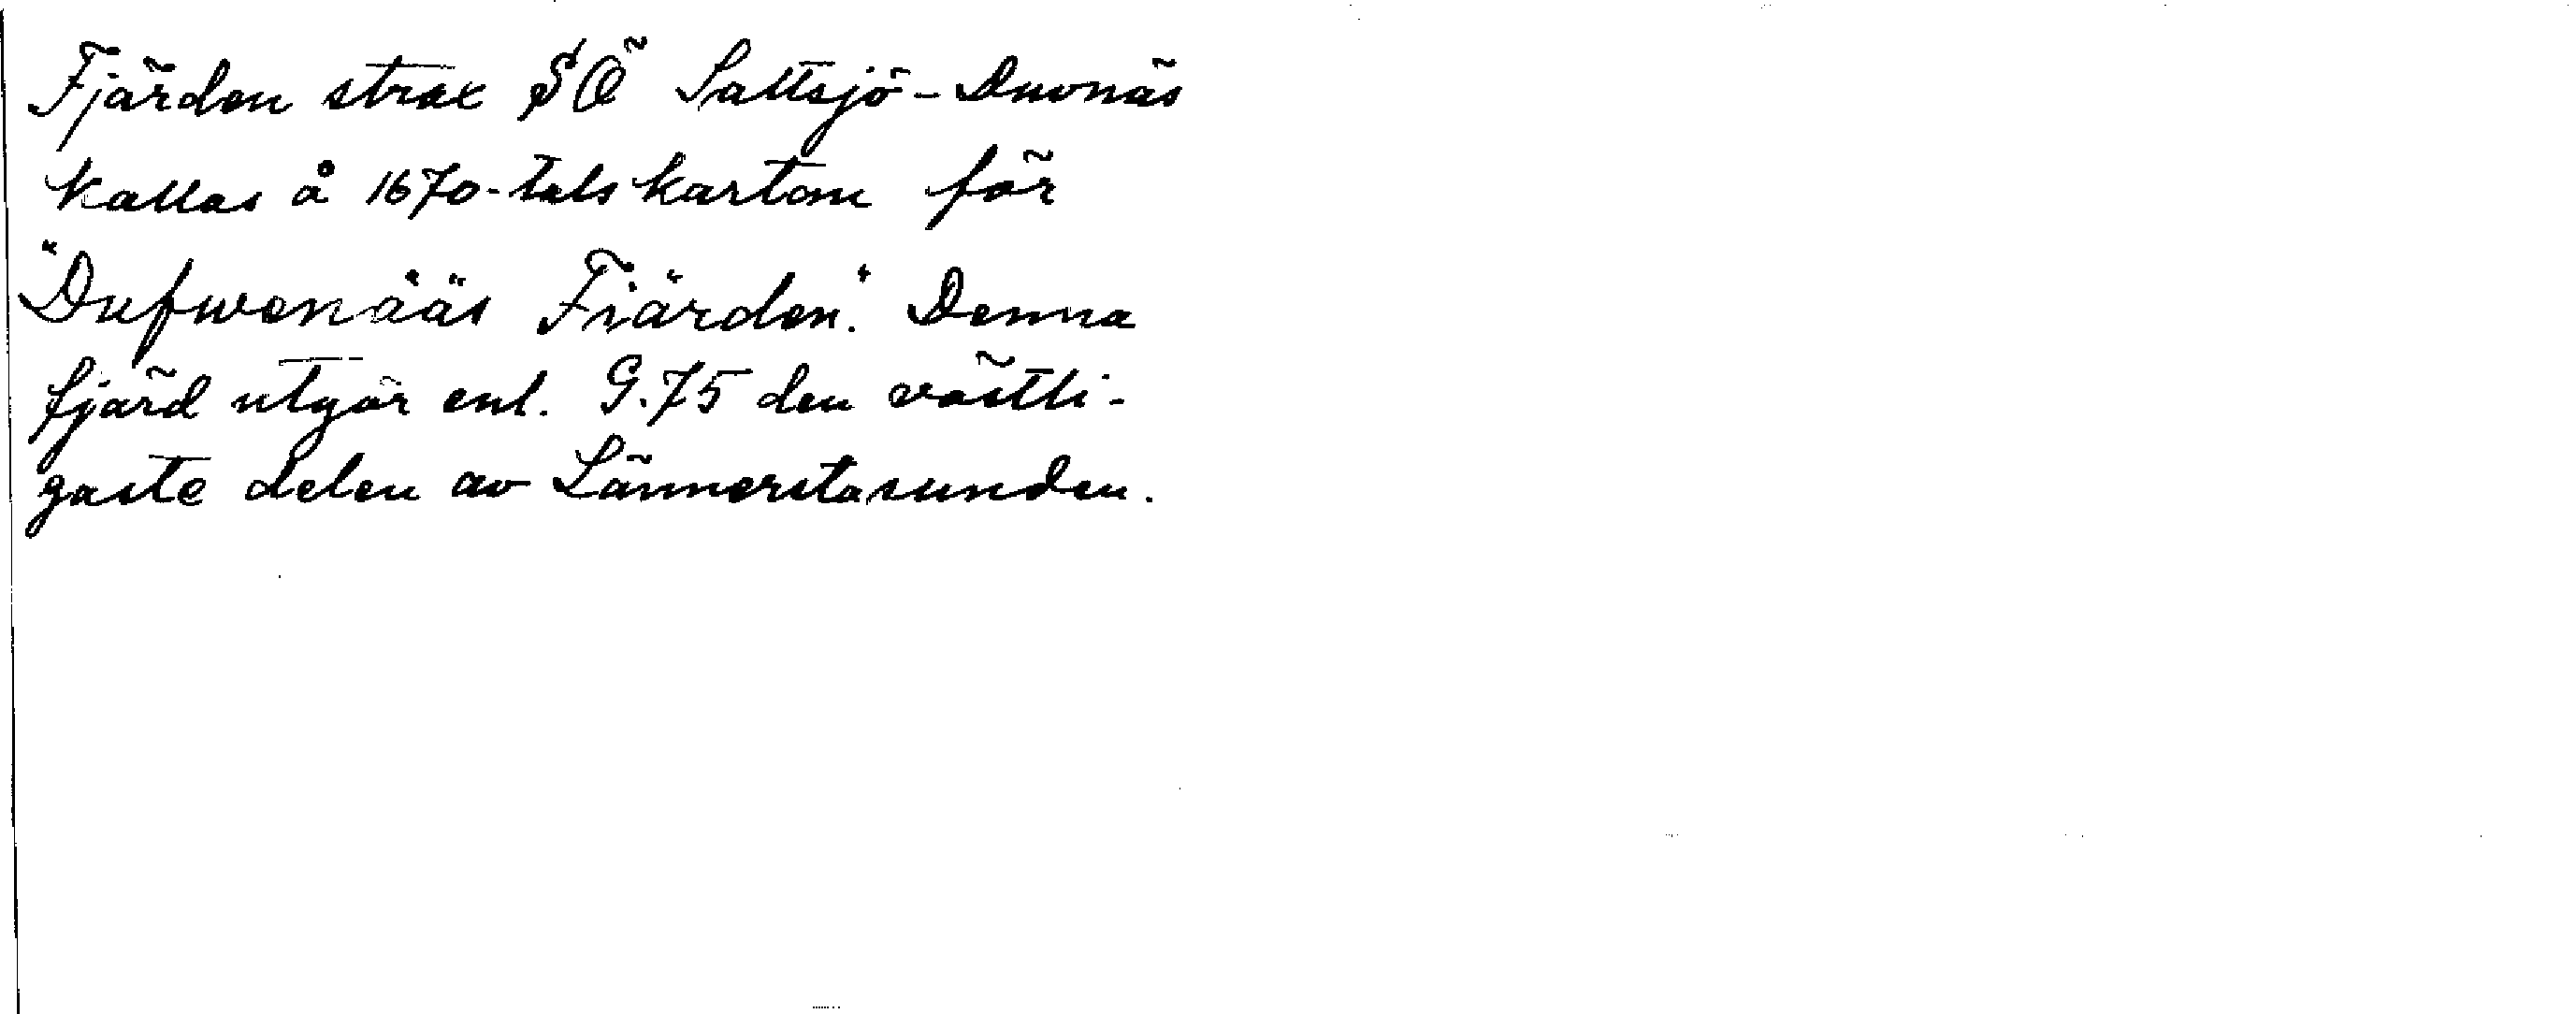 Fjärden strax SÖ Saltsjö-Duvnäs
kallas å 1670-talskartan för
"Dufwenääs Fiärden". Denna
fjärd utgör enl. G.75 den västli-
gaste delen av Lännerstasunden.